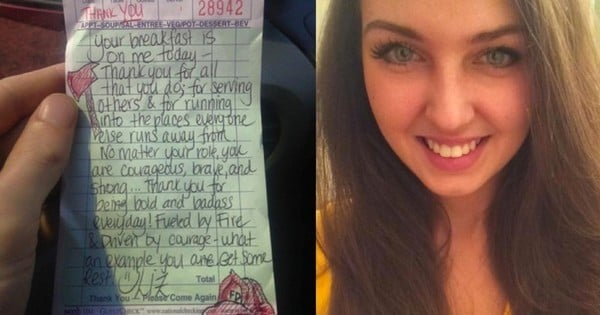 THANK YOU 28942
APPT-SOUP/SAL-ENTREE-VEG/POT-DESSERT-BEV
Your breakfast is
on me today -
Thank you for all
that you do; for serving
others & for running
into the places everyone
else runs away from.
No matter your role, you
are courageous, brave, and
strong... Thank you for
being bold and badass
everyday! Fueled by Fire
& Driven by courage - what
an example you are. Get some
rest. Liz
Total
Thank You - Please Come Again
FD